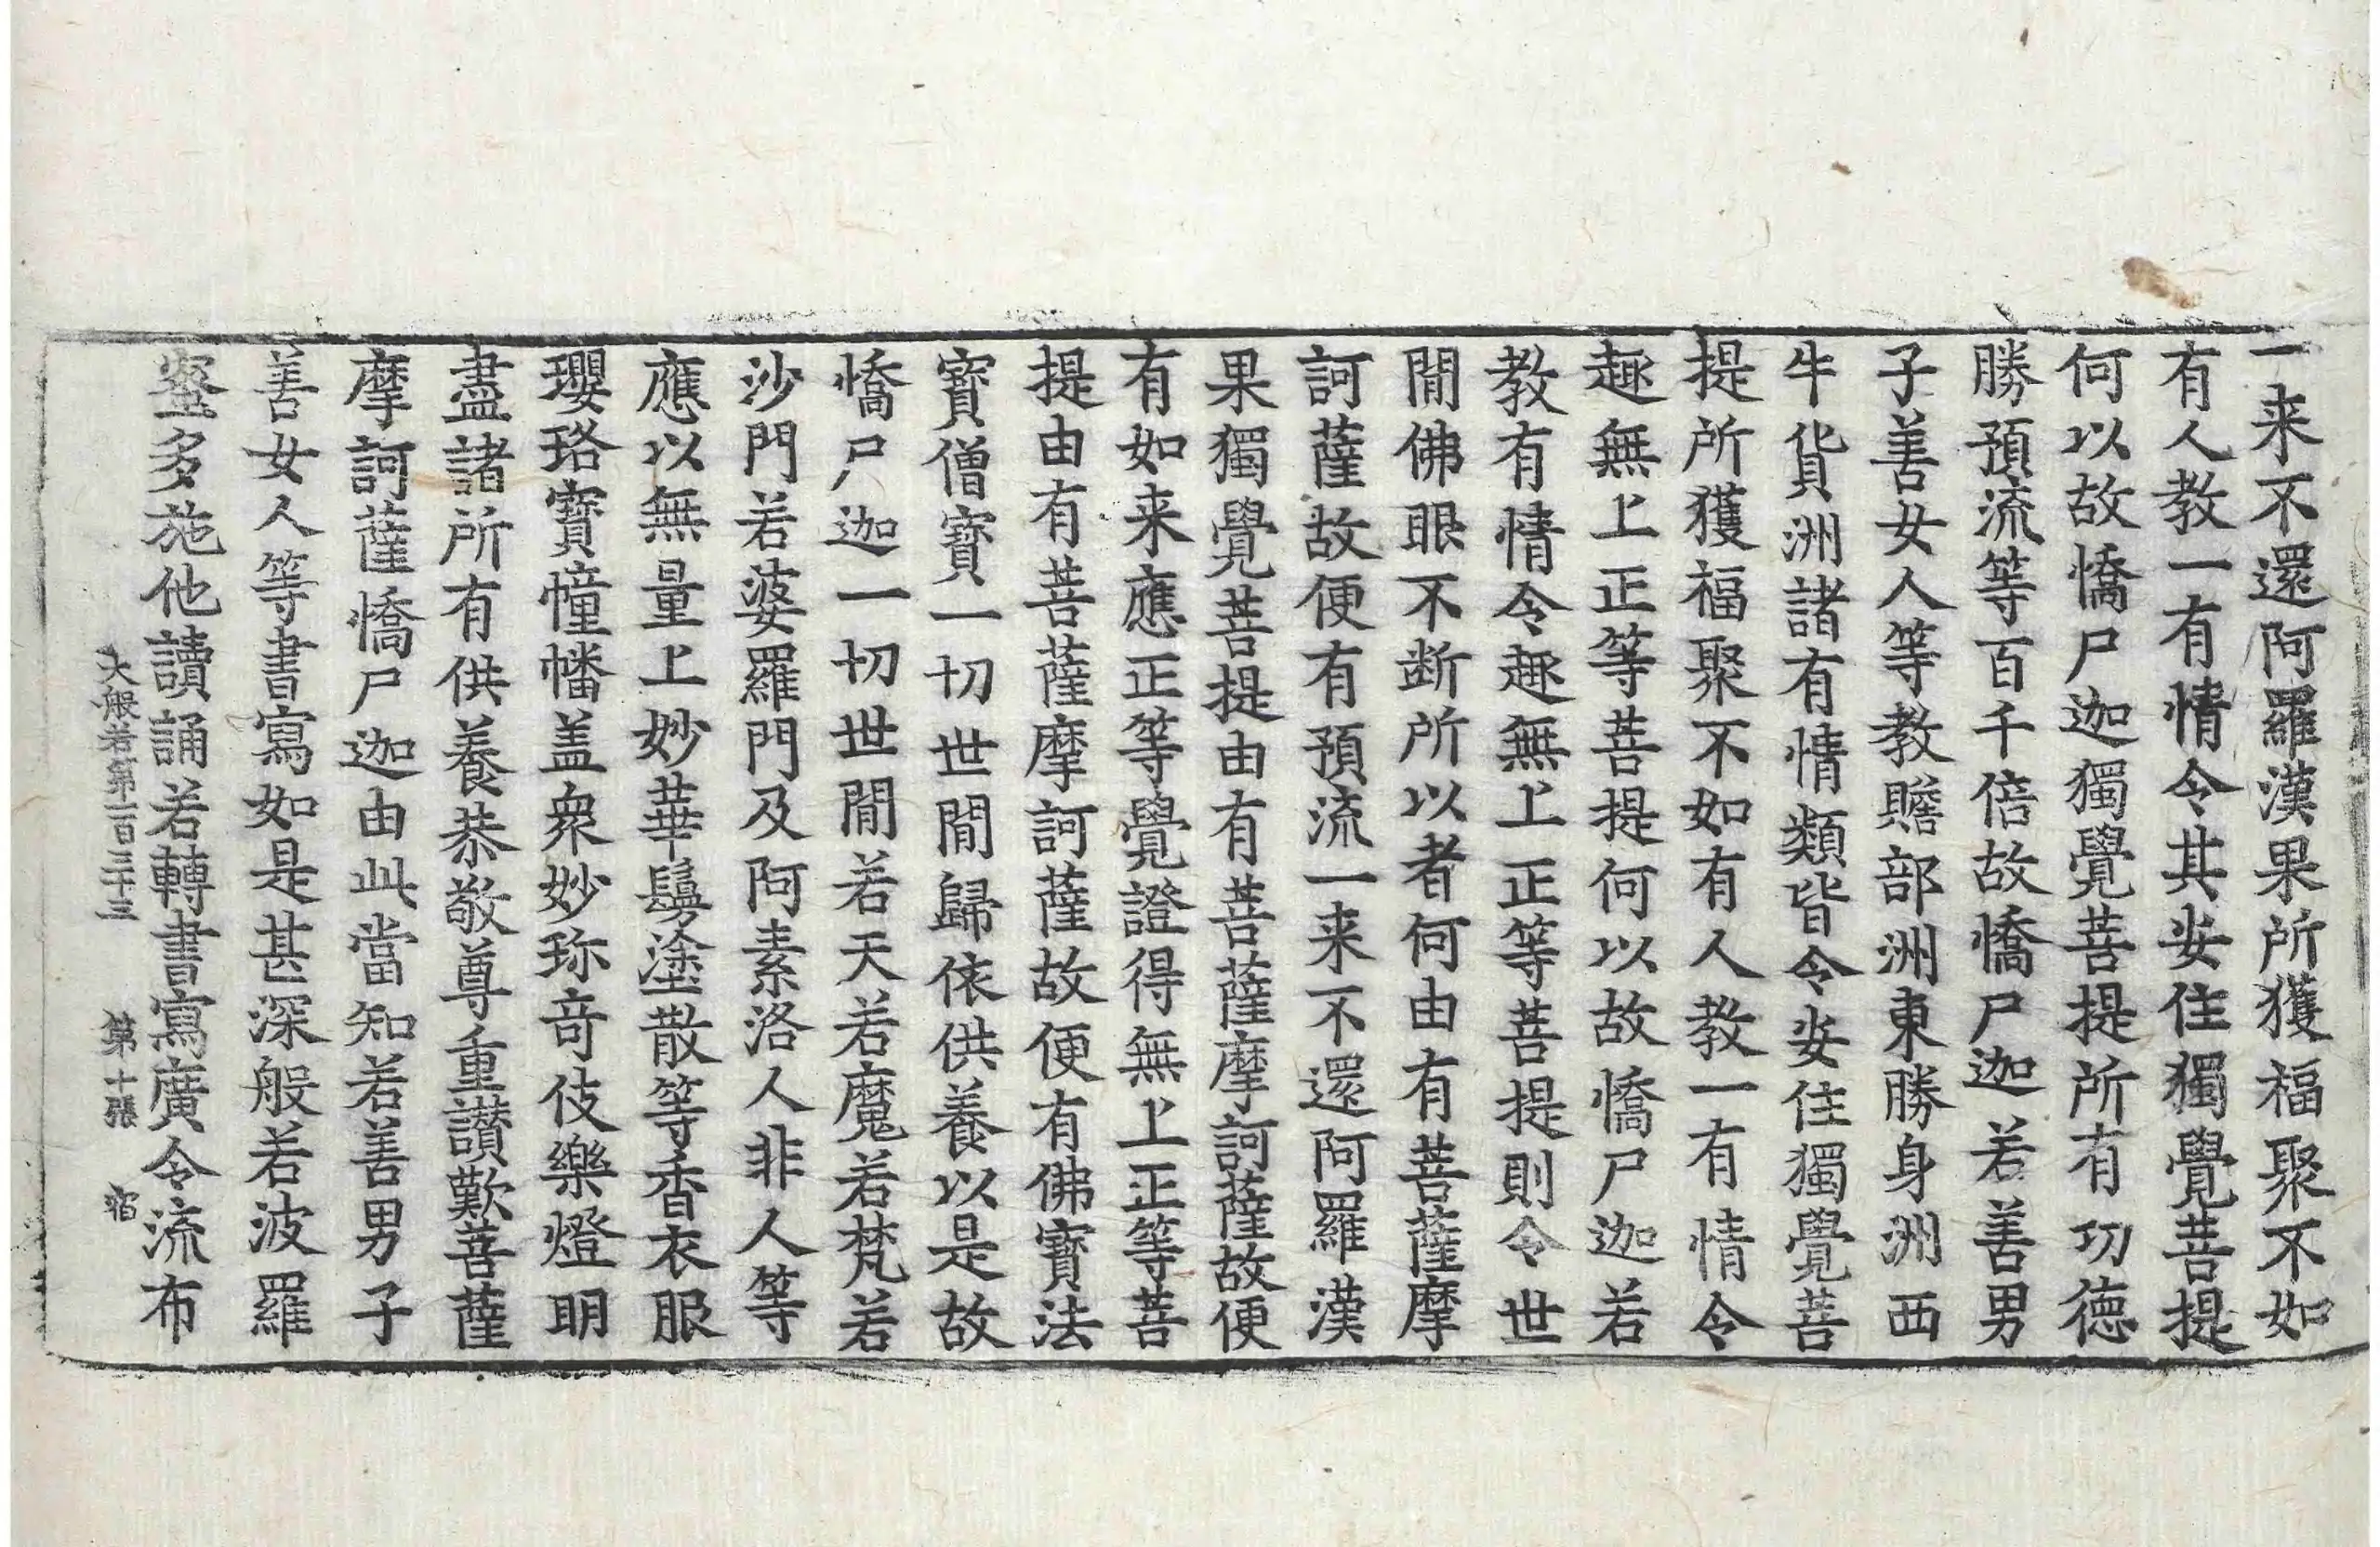 一来不還阿羅漢果所獲福聚不如
有人教一有情令其安住獨覺菩提
何以故憍尸迦獨覺菩提所有功德
勝預流等百千倍故憍尸迦若善男
子善女人等教贍部洲東勝身洲西
牛貨洲諸有情類皆令安住獨覺菩
提所獲福聚不如有人教一有情令
趣無上正等菩提何以故憍尸迦若
教有情令趣無上正等菩提則令世
閒佛眼不断所以者何由有菩薩摩
訶薩故便有預流一来不還阿羅漢
果獨覺菩提由有菩薩摩訶薩故便
有如来應正等覺證得無上正等菩
提由有菩薩摩訶薩故便有佛寶法
寶僧寶一切世閒歸依供養以是故
憍尸迦一切世閒若天若魔若梵若
沙門若婆羅門及阿素洛人非人等
應以無量上妙華鬘塗散等香衣服
瓔珞寶幢幡盖衆妙珎竒伎樂燈明
盡諸所有供養恭敬尊重讃歎菩薩
摩訶薩憍尸迦由此當知若善男子
善女人等書寫如是甚深般若波羅
蜜多施他讀誦若轉書寫廣令流布
大般若第一百三十三 第十張 宿